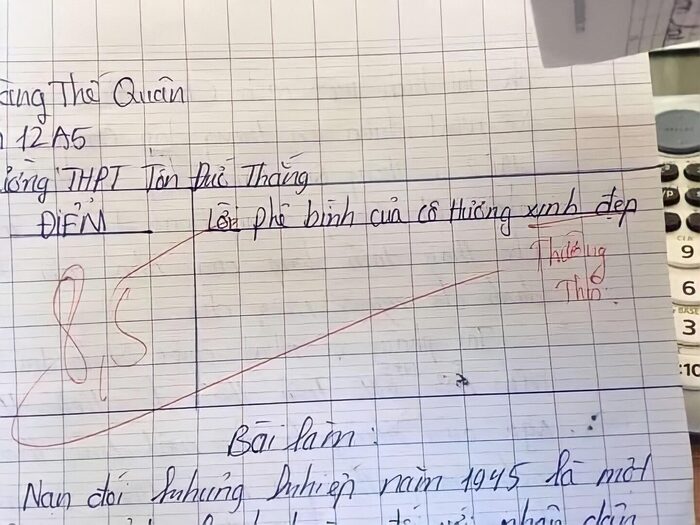 àng Thế Quân
12A5
ường THPT Tôn Đức Thắng
ĐIỂM
Lời phê bình của cô Hương xinh đẹp
8,5
Thưởng
Bài làm:
Nạn đói khủng khiếp năm 1945 là một
nhân dân
9
6
3